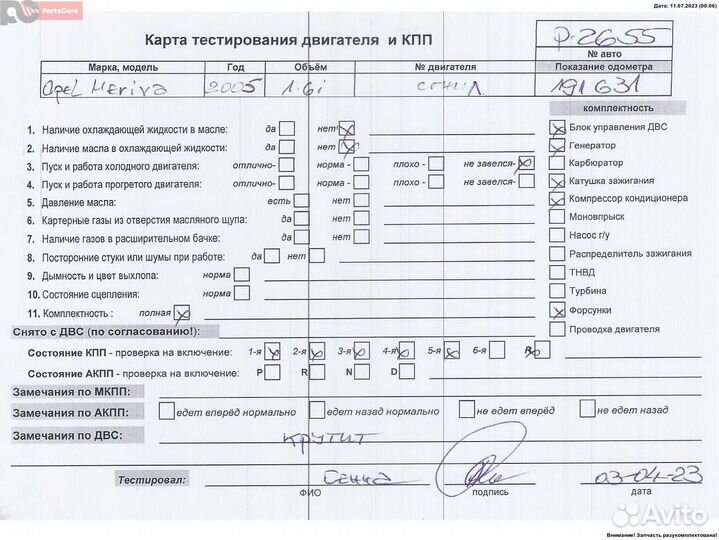 Дата: 11.07.2023 (00:06)
PartsCore
Карта тестирования двигателя и КПП
P-2655
№ авто
Марка, модель Год Объём № двигателя Показание одометра
Opel Meriva 2005 1.6i сгнил 191631
комплектность
1. Наличие охлаждающей жидкости в масле: да нет
2. Наличие масла в охлаждающей жидкости: да нет
3. Пуск и работа холодного двигателя: отлично- норма - плохо - не завелся-
4. Пуск и работа прогретого двигателя: отлично- норма - плохо - не завелся-
5. Давление масла: есть нет
6. Картерные газы из отверстия масляного щупа: да нет
7. Наличие газов в расширительном бачке: да нет
8. Посторонние стуки или шумы при работе: да нет
9. Дымность и цвет выхлопа: норма
10. Состояние сцепления: норма
11. Комплектность : полная
Блок управления ДВС
Генератор
Карбюратор
Катушка зажигания
Компрессор кондиционера
Моновпрыск
Насос г/у
Распределитель зажигания
ТНВД
Турбина
Форсунки
Проводка двигателя
Снято с ДВС (по согласованию!):
Состояние КПП - проверка на включение: 1-я 2-я 3-я 4-я 5-я 6-я R
Состояние АКПП - проверка на включение: P R N D
Замечания по МКПП:
Замечания по АКПП: едет вперёд нормально едет назад нормально не едет вперёд не едет назад
Замечания по ДВС: крутит
Тестировал: 03-04-23
ФИО подпись дата
Avito
Внимание! Запчасть разукомплектована!